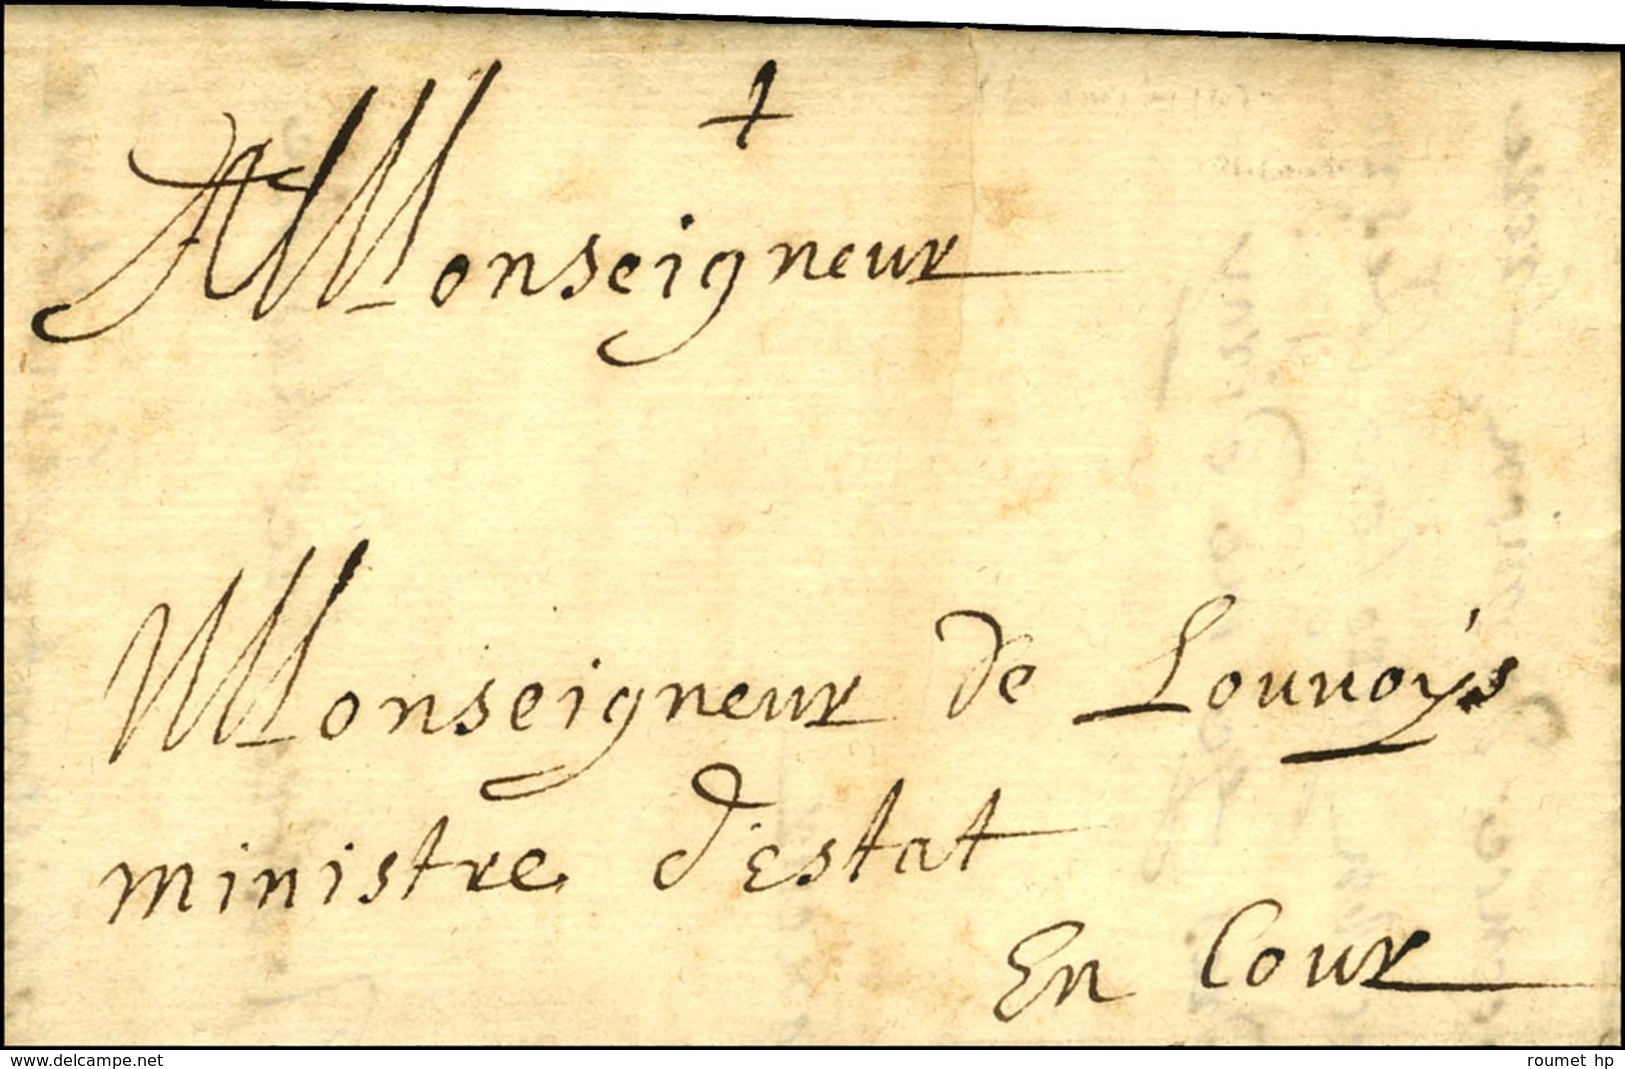 +
A Monseigneur
Monseigneur de Louuoÿs
ministre d'estat
En Cour
www.delcampe.net
roumet hp